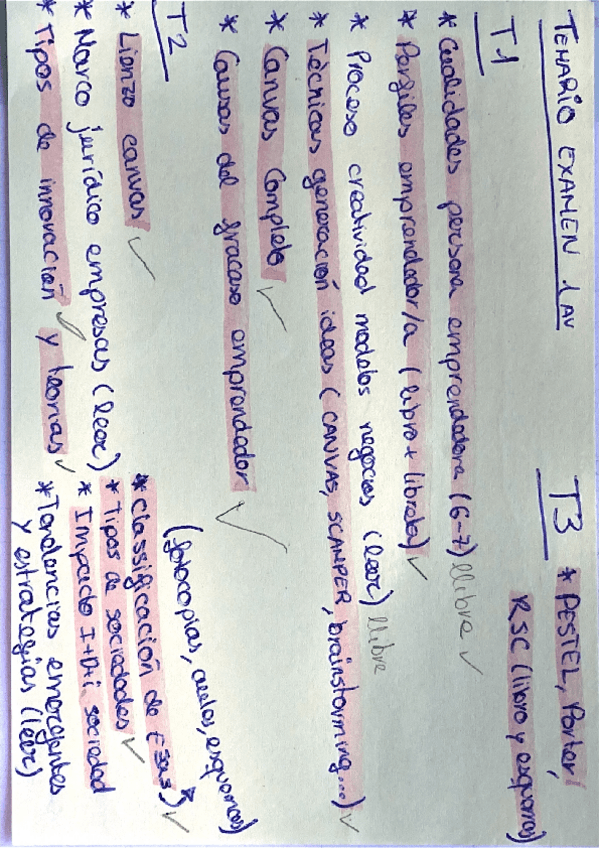 TEMARIO EXAMEN 1 AV
T1
* Cualidades persona emprendedora (6-7) llibre ✓
* Perfiles emprendedor/a (libro + libreta) ✓
* Proceso creatividad modelos negocios (leer) llibre
* Técnicas generación ideas (CANVAS, SCAMPER, brainstorming...) ✓
* Canvas Completo ✓
* Causas del fracaso emprendedor ✓
T2
* Lienzo canvas ✓
* Marco jurídico empresas (leer)
* Tipos de innovación ✓ y teorías ✓
(fotocopias, aules, esquemas)
* Classificación de Esas. ✓
* Tipos de sociedades ✓
* Impacto I+D+i sociedad
* Tendencias emergentes
y estrategias (leer)
T3
* PESTEL, Porter,
RSC (libro y esquemas)